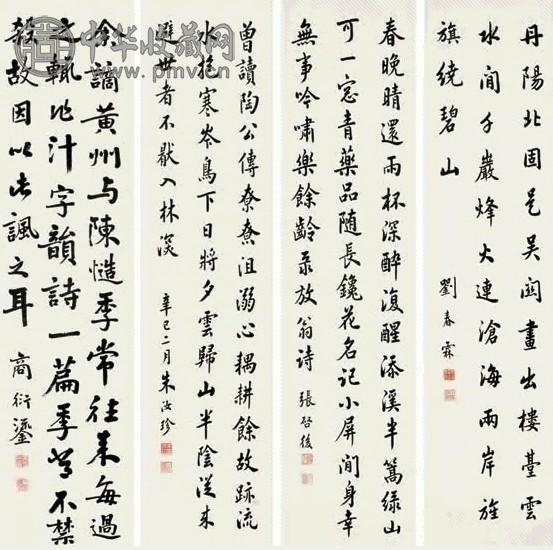 中华收藏网
www.pmv.cn
丹陽北固是吳關畫出樓臺雲
水間千巖烽火連滄海兩岸旌
旗繞碧山
劉春霖
春晚晴還雨杯深醉復醒添溪半篙綠山
可一窓青藥品随長鑱花名記小屏間身幸
無事吟嘯樂餘齡录放翁詩 張啓後
曾讀陶公傳寮寮沮溺心耦耕餘故跡流
水抱寒岑鳥下日將夕雲歸山半陰從来
避世者不厭入林深 辛巳二月朱汝珍
余謫黃州与陳慥季常往来每過
之輒作汁字韻詩一篇季常不禁
殺故因以此諷之耳 商衍鎏